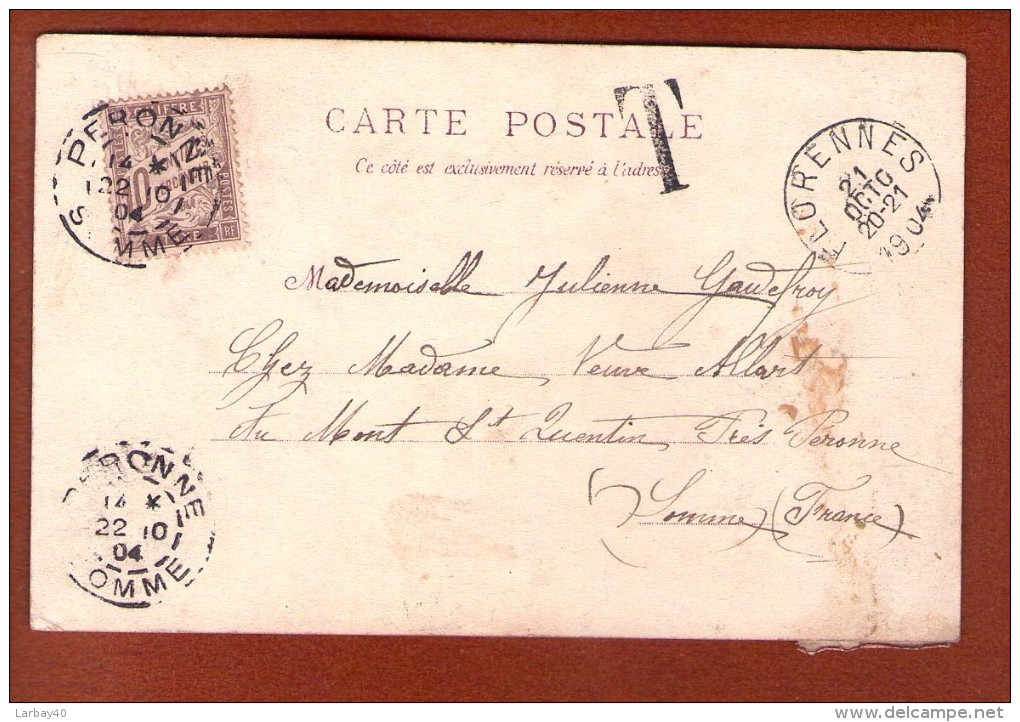 CARTE POSTALE
T
Ce côté est exclusivement réservé à l'adresse
CHIFFRE
10
POSTES
RF
PERONNE
14 *
22 10
04
SOMME
FLORENNES
21
OCTO
20-21
1904
Mademoiselle Julienne Gaudefroy
Chez Madame Veuve Allart
Au Mont St Quentin Près Peronne
(Somme) (France)
PERONNE
14 *
22 10
04
SOMME
Larbay40
delcampe.net